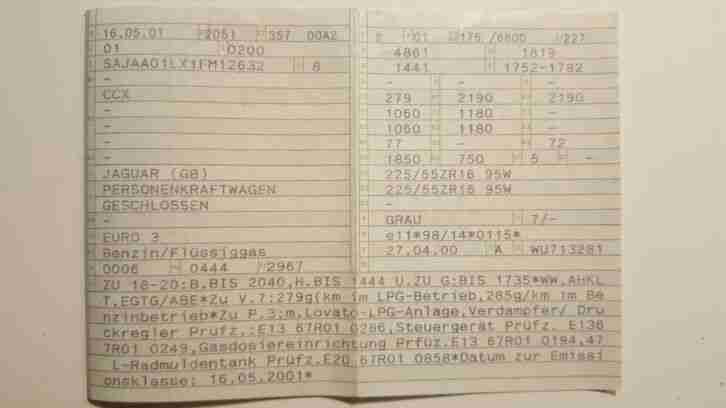 16.05.01 2051 357 00A2
01 0200
SAJAA01LX1FM12632 8
-
CCX
-
-
-
-
JAGUAR (GB)
PERSONENKRAFTWAGEN
GESCHLOSSEN
-
EURO 3
Benzin/Flüssiggas
0006 0444 2967
01 175 /6800 227
4861 1819
1441 1752-1782
- -
- - -
279 2190 2190
1060 1180 -
1060 1180 -
77 - 72
1850 750 5 -
225/55ZR16 95W
225/55ZR16 95W
-
GRAU 7/-
e11*98/14*0115*
27.04.00 A WU713281
ZU 18-20:B.BIS 2040,H.BIS 1444 U.ZU G:BIS 1735*WW.AHKL
T.EGTG/ABE*Zu V.7:279g(km im LPG-Betrieb,285g/km im Be
nzinbetrieb*Zu P.3:m.Lovato-LPG-Anlage,Verdampfer/ Dru
ckregler Prüfz.:E13 67R01 0286,Steuergerät Prüfz. E136
7R01 0249,Gasdosiereinrichtung Prfüz.E13 67R01 0194,47
L-Radmuldentank Prüfz.E20 67R01 0858*Datum zur Emissi
onsklasse: 16.05.2001*